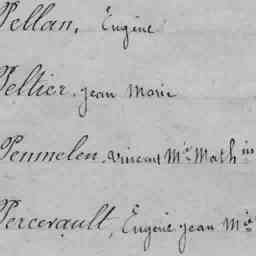 Pellan, Eugène
Pellier, jean Marie
Penmelen, Vincent Mie Mathin
Percevault, Eugène jean Mie